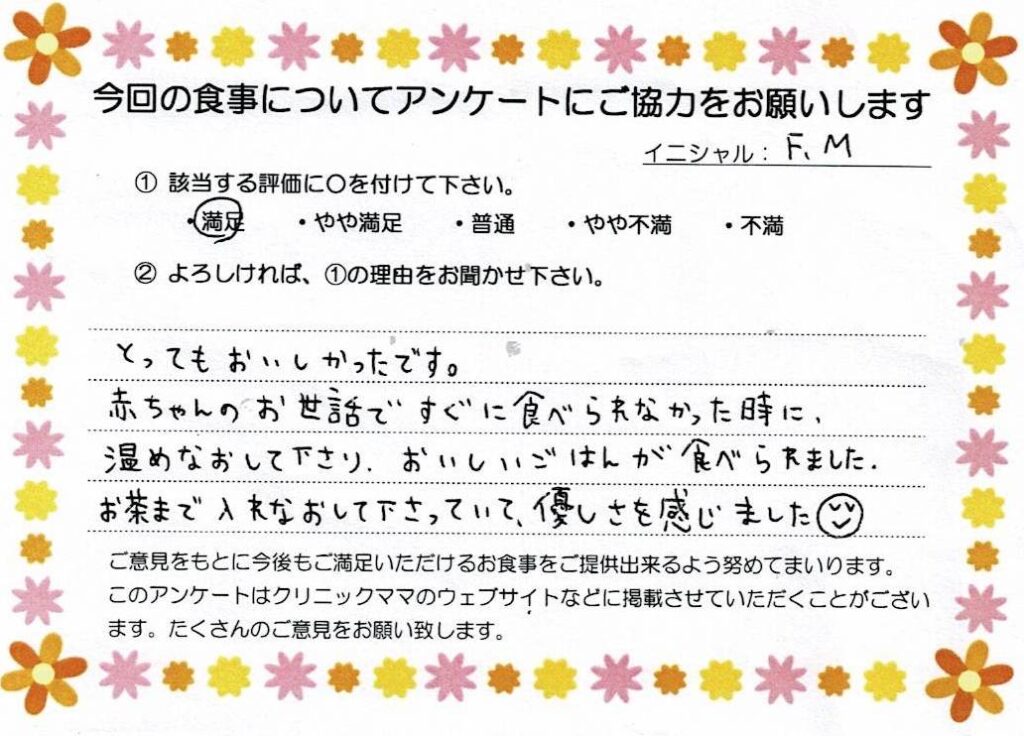 今回の食事についてアンケートにご協力をお願いします
イニシャル： F、M
① 該当する評価に〇を付けて下さい。
・満足 ・やや満足 ・普通 ・やや不満 ・不満
② よろしければ、①の理由をお聞かせ下さい。
とってもおいしかったです。
赤ちゃんのお世話ですぐに食べられなかった時に、
温めなおして下さり、おいしいごはんが食べられました。
お茶まで入れなおして下さっていて、優しさを感じました
ご意見をもとに今後もご満足いただけるお食事をご提供出来るよう努めてまいります。
このアンケートはクリニックママのウェブサイトなどに掲載させていただくことがござい
ます。たくさんのご意見をお願い致します。